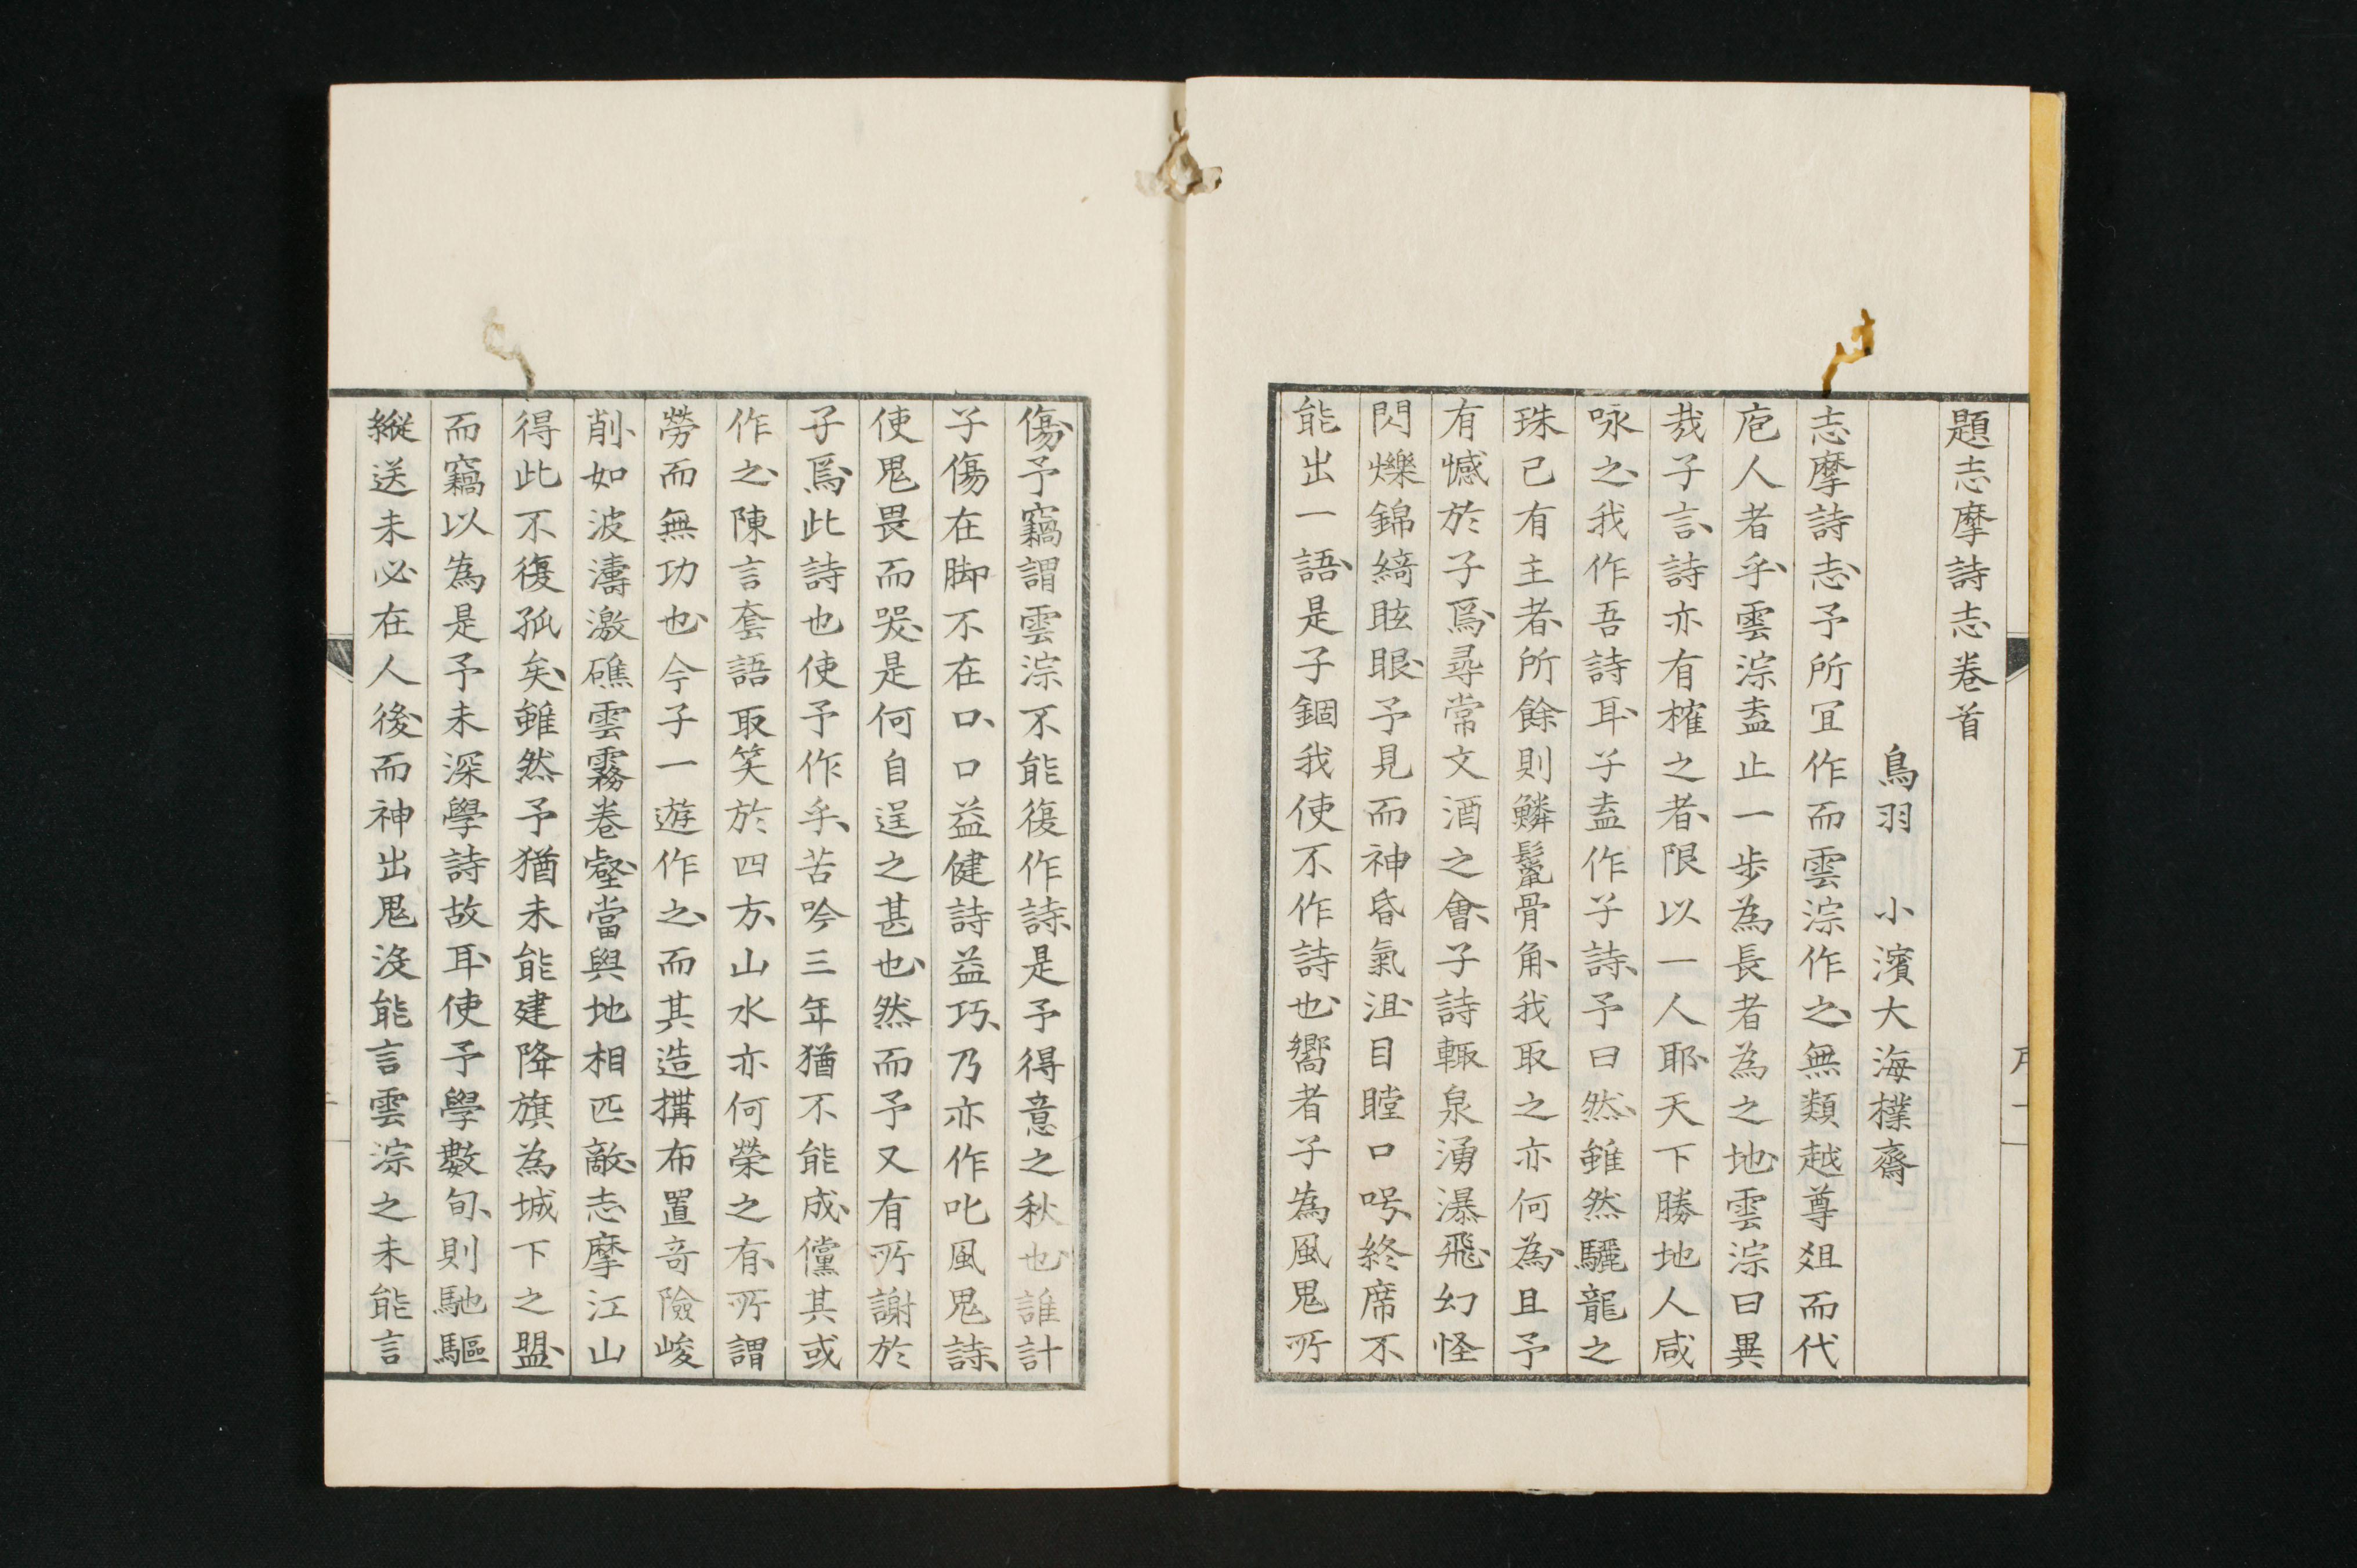 題志摩詩志卷首
鳥羽 小濱大海樸齋
志摩詩志、予所冝作而雲淙作之、無類越尊爼而代
庖人者乎、雲淙盍止一步為長者為之地、雲淙曰異
哉子言、詩亦有榷之者、限以一人耶、天下勝地人咸
咏之、我作吾詩耳、子盍作子詩、予曰然、雖然驪龍之
珠已有主者、所餘則鱗鬣骨角、我取之亦何為、且予
有憾於子焉、尋常文酒之會、子詩輒泉湧瀑飛、幻怪
閃爍錦綺眩眼、予見而神昏氣沮、目瞠口呺、終席不
能出一語、是子錮我使不作詩也、嚮者子為風鬼所
傷、予竊謂雲淙不能復作詩、是予得意之秋也、誰計
子傷在脚不在口、口益健詩益巧、乃亦作叱風鬼詩、
使鬼畏而哭、是何自逞之甚也、然而予又有所謝於
子焉、此詩也使予作乎、苦吟三年猶不能成、儻其或
作之、陳言套語取笑於四方、山水亦何榮之有、所謂
勞而無功也、今子一遊作之、而其造搆布置竒險峻
削、如波濤激礁雲霧卷壑、當與地相匹敵、志摩江山
得此不復孤矣、雖然予猶未能建降旗為城下之盟、
而竊以為是予未深學詩故耳、使予學數旬、則馳驅
縱送未必在人後、而神出鬼沒能言雲淙之未能言